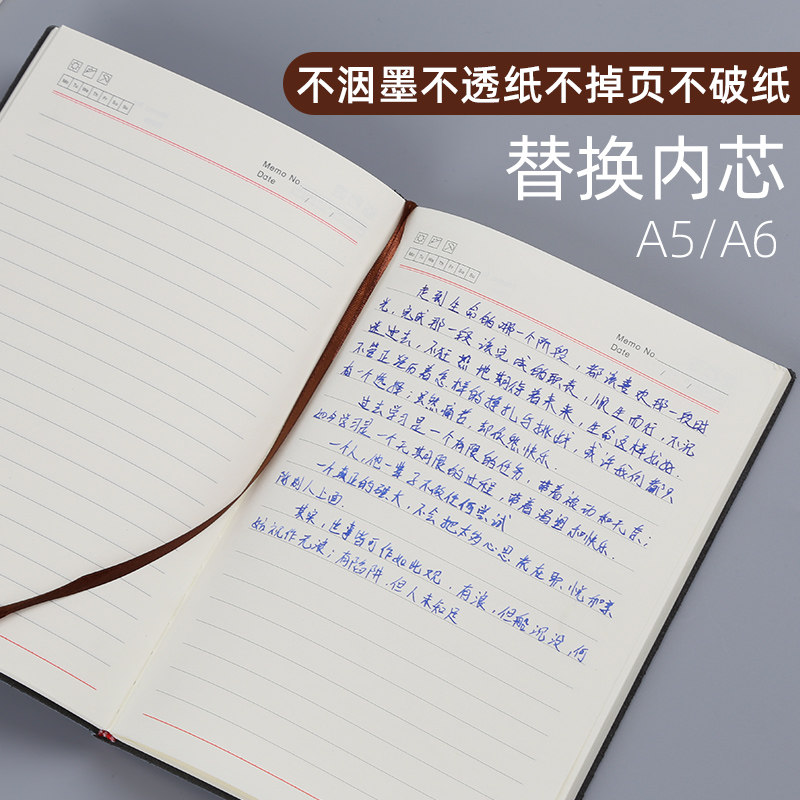 不洇墨不透纸不掉页不破纸
替换内芯
A5/A6
Mo Tu We Th Fr Sa Su
Memo No.
Date / /
Mo Tu We Th Fr Sa Su
Memo No.
Date / /
走到生命的哪一个阶段，都该喜欢那一段时
光，完成那一段该完成的职责，顺生而行，不沉
迷过去，不狂热地期待着未来，生命这样就好。
不管正经历着怎样的挣扎与挑战，或许我们都只
有一个选择：虽然痛苦，却依然快乐
过去学习是一个有限的任务，带着被动和无奈；
如今学习是一个无期限的过程，带着渴望和快乐.
一个人，他一辈子不做任何尝试
一个真正的强大，不会把太多心思花在取悦和亲
附别人上面.
其实，世事皆可作如此观，有浪，但船沉没，何
妨视作无浪；有陷阱，但人未知足